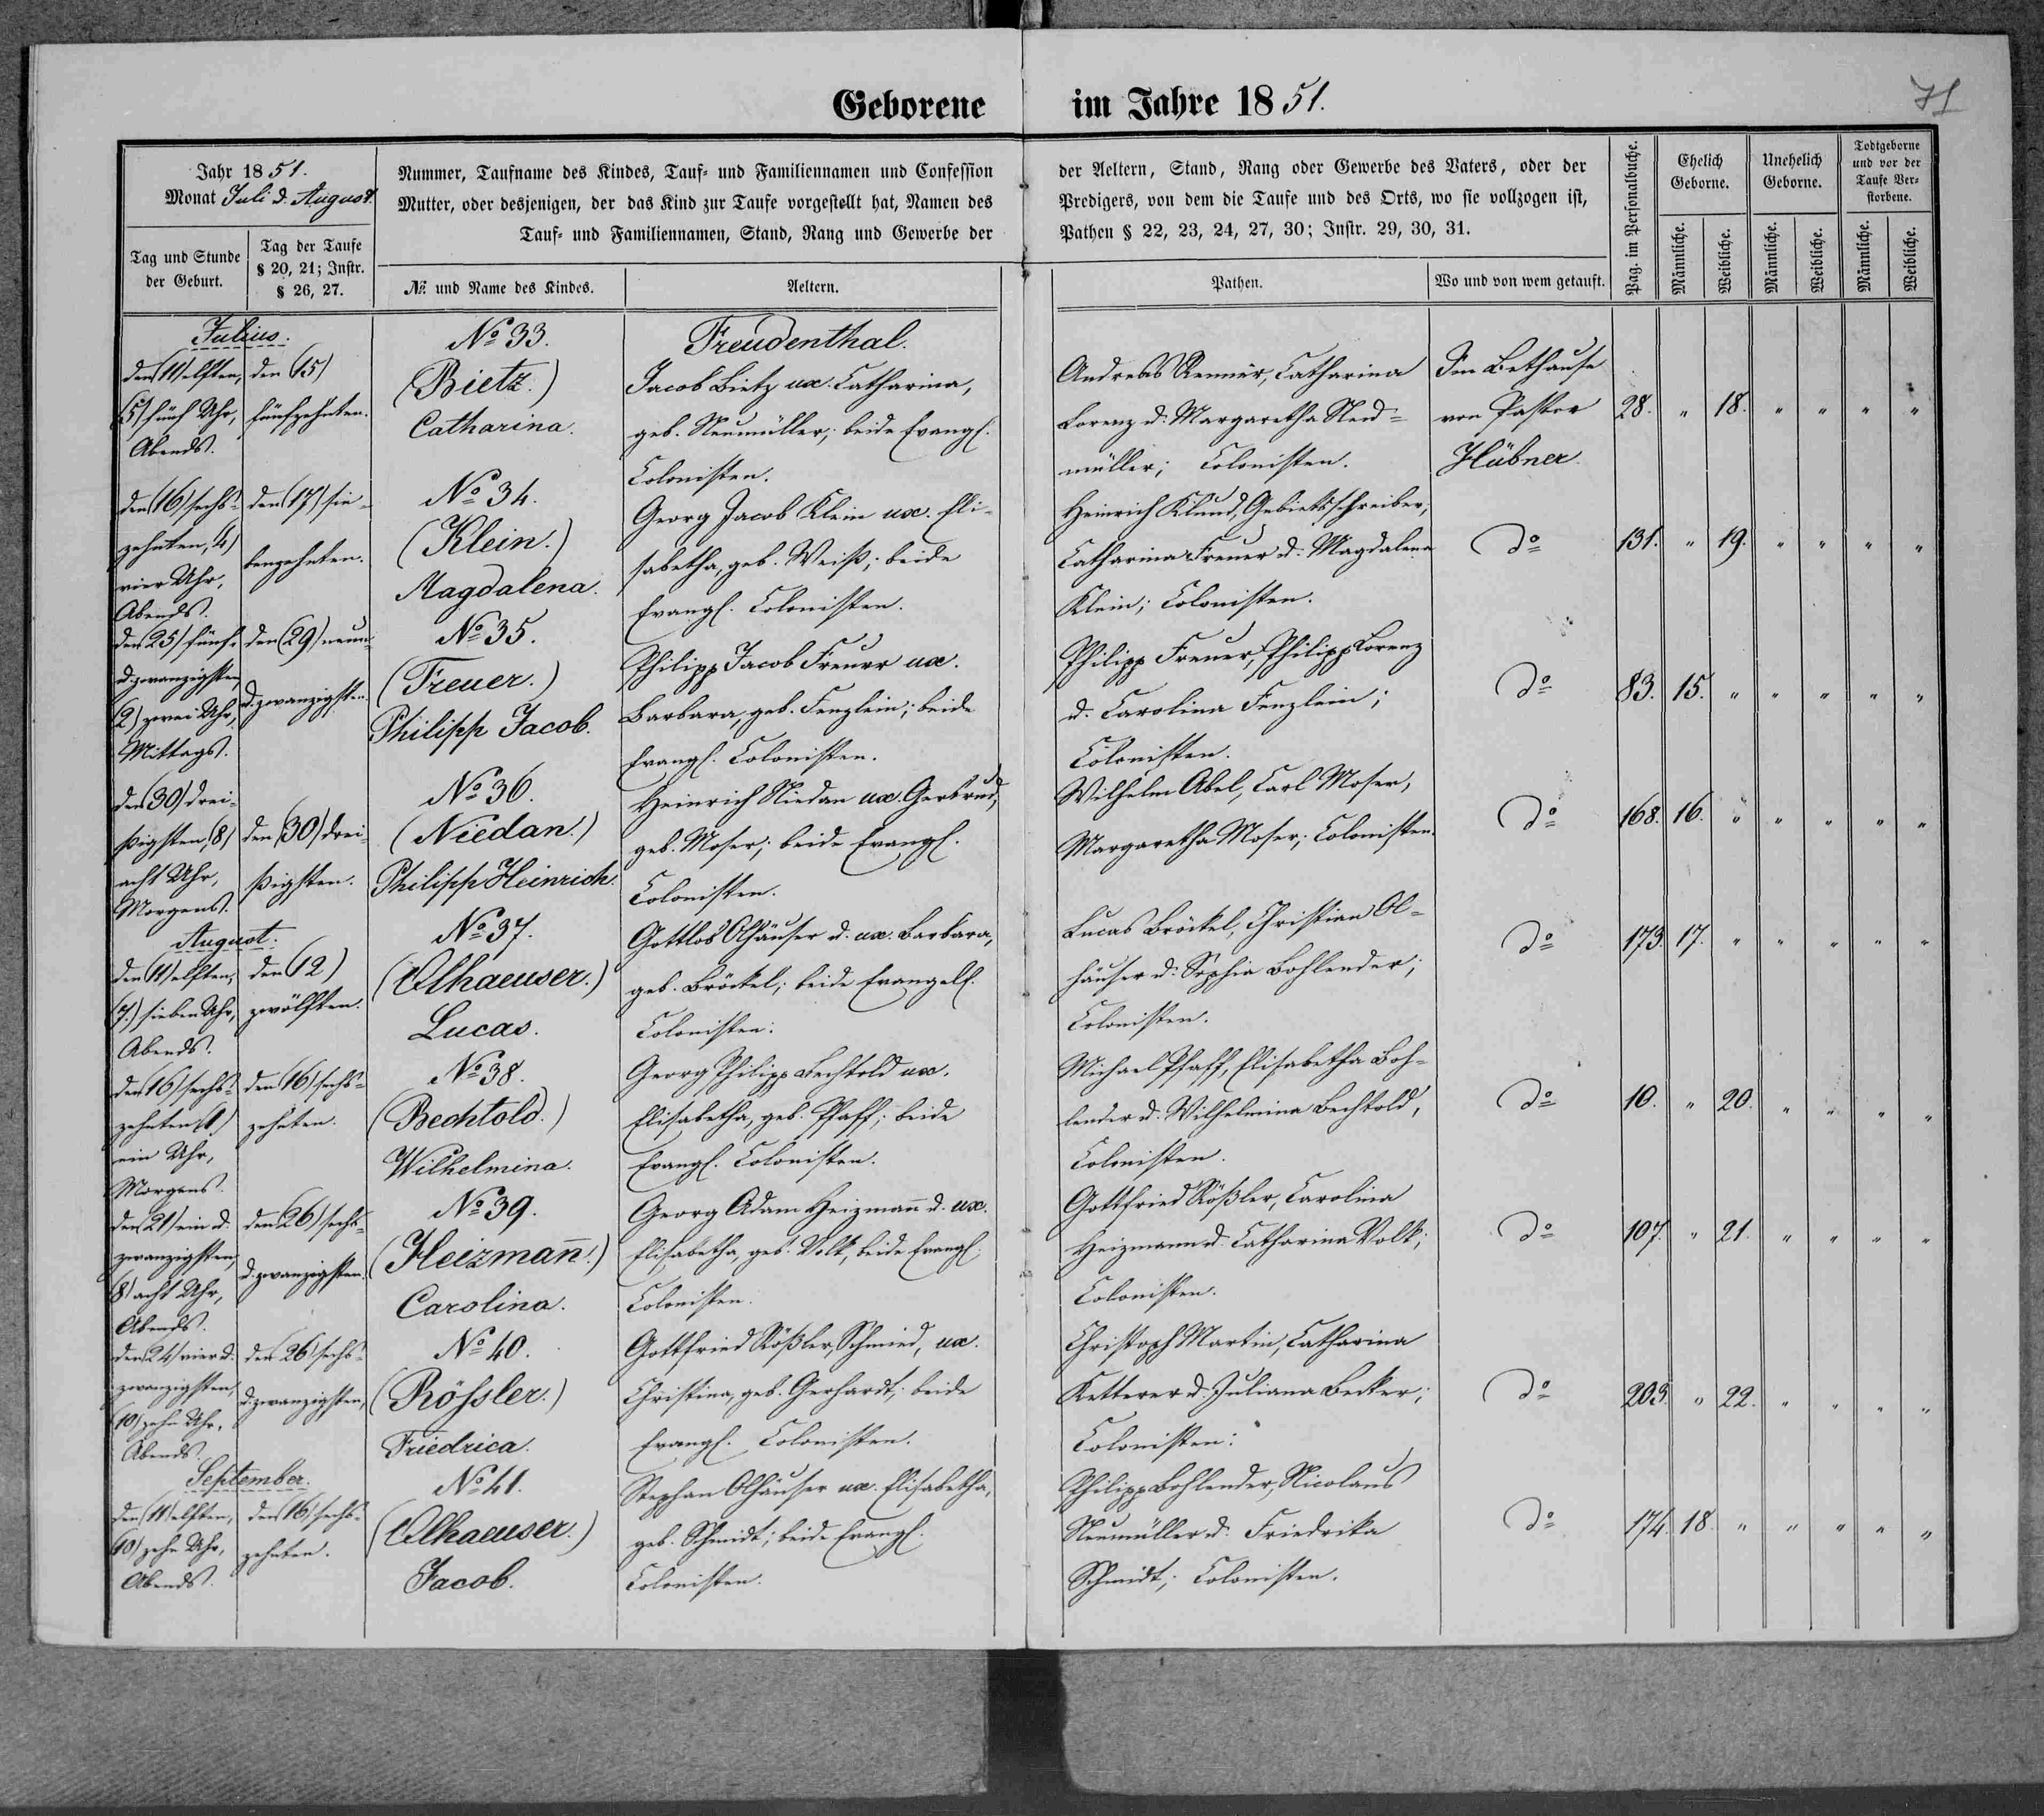 Geborene im Jahre 1851.
71
Jahr 1851.
Monat Juli d. August.
Tag und Stunde der Geburt.
Tag der Taufe § 20, 21; Instr. § 26, 27.
Nummer, Taufname des Kindes, Tauf- und Familiennamen und Confession
Mutter, oder desjenigen, der das Kind zur Taufe vorgestellt hat, Namen des
Tauf- und Familiennamen, Stand, Rang und Gewerbe der
№ und Name des Kindes.
Aeltern.
der Aeltern, Stand, Rang oder Gewerbe des Vaters, oder der
Predigers, von dem die Taufe und des Orts, wo sie vollzogen ist,
Pathen § 22, 23, 24, 27, 30; Instr. 29, 30, 31.
Pathen.
Wo und von wem getauft.
Pag. im Personalbuche.
Ehelich Geborne.
Unehelich Geborne.
Todtgeborne und vor der Taufe Verstorbene.
Männliche.
Weibliche.
Männliche.
Weibliche.
Männliche.
Weibliche.
Julius.
den (11) elften,
(5) fünf Uhr,
Abends.
den (15)
fünfzehnten.
№ 33.
(Bietz.)
Catharina.
Freudenthal.
Jacob Bietz ux. Catharina,
geb. Neumüller; beide Evangl.
Colonisten.
Andreas Renner, Catharina
Lorenz d. Margaretha Neu=
müller; Colonisten.
Im Bethause
von Pastor
Hübner
28. " 18. " " " "
den (16) sechs=
zehnten, 4)
vier Uhr,
Abends.
den (17) sie=
benzehnten.
№ 34.
(Klein.)
Magdalena.
Georg Jacob Klein ux. Eli=
sabetha, geb. Weiß; beide
Evangl. Colonisten.
Heinrich Klund, Gebietsschreiber,
Catharina Freuer d. Magdalena
Klein; Colonisten.
do
131. " 19. " " " "
den 25) fünf=
d. zwanzigsten,
(2) zwei Uhr,
Mittags.
den (29) neun=
d. zwanzigsten.
№ 35.
(Freuer.)
Philipp Jacob.
Philipp Jacob Freuer ux.
Barbara, geb. Fenzlein; beide
Evangl. Colonisten.
Philipp Freuer, Philipp Lorenz
d. Carolina Fenzlein;
Colonisten.
do
83. 15. " " " " "
den 30) drei=
ßigsten, (8)
acht Uhr,
Morgens.
den (30) drei=
ßigsten.
№ 36.
(Niedan.)
Philipp Heinrich.
Heinrich Niedan ux. Gertrud,
geb. Moser; beide Evangl.
Colonisten.
Wilhelm Abel, Carl Moser,
Margaretha Moser; Colonisten.
do
168. 16. " " " " "
August.
den (11) elften,
(7.) sieben Uhr,
Abends.
den (12)
zwölften.
№ 37.
(Olhaeuser.)
Lucas.
Gottlob Olhäuser d. ux. Barbara,
geb. Bröckel; beide Evangel.
Colonisten.
Lucas Bröckel, Christian Ol=
häuser d. Sophia Bohlender;
Colonisten.
do
173. 17. " " " " "
den (16) sechs=
zehnten (1)
ein Uhr,
Morgens.
den (16) sechs=
zehnten.
№ 38.
(Bechtold.)
Wilhelmina.
Georg Philipp Bechtold ux.
Elisabetha, geb. Pfaff; beide
Evangl. Colonisten.
Michael Pfaff, Elisabetha Boh=
lender d. Wilhelmina Bechtold,
Colonisten.
do
10. " 20. " " " "
den (21) ein d.
zwanzigsten,
(8) acht Uhr,
Abends.
den (26) sechs=
d. zwanzigsten.
№ 39.
(Heizmañ.)
Carolina.
Georg Adam Heizmañ d. ux.
Elisabetha, geb. Volk, beide Evangl.
Colonisten.
Gottfried Rößler, Carolina
Heizmann d. Catharina Volk;
Colonisten.
do
107. " 21. " " " "
den 24) vier d.
zwanzigsten,
(10) zehn Uhr,
Abends.
den 26) sechs=
d. zwanzigsten,
№ 40.
(Rößler.)
Friedrica.
Gottfried Rößler, Schmied, ux.
Christina, geb. Gerhardt; beide
Evangl. Colonisten.
Christoph Martin, Catharina
Ketterer d. Juliana Becker;
Colonisten.
do
203. " 22. " " " "
September.
den (11) elften,
(10) zehn Uhr,
Abends.
den (16) sechs=
zehnten.
№ 41.
(Olhaeuser.)
Jacob.
Stephan Olhäuser ux. Elisabetha,
geb. Schmidt; beide Evangl.
Colonisten.
Philipp Bohlender, Nicolaus
Neumüller d. Friedrika
Schmidt; Colonisten.
do
174. 18. " " " " "